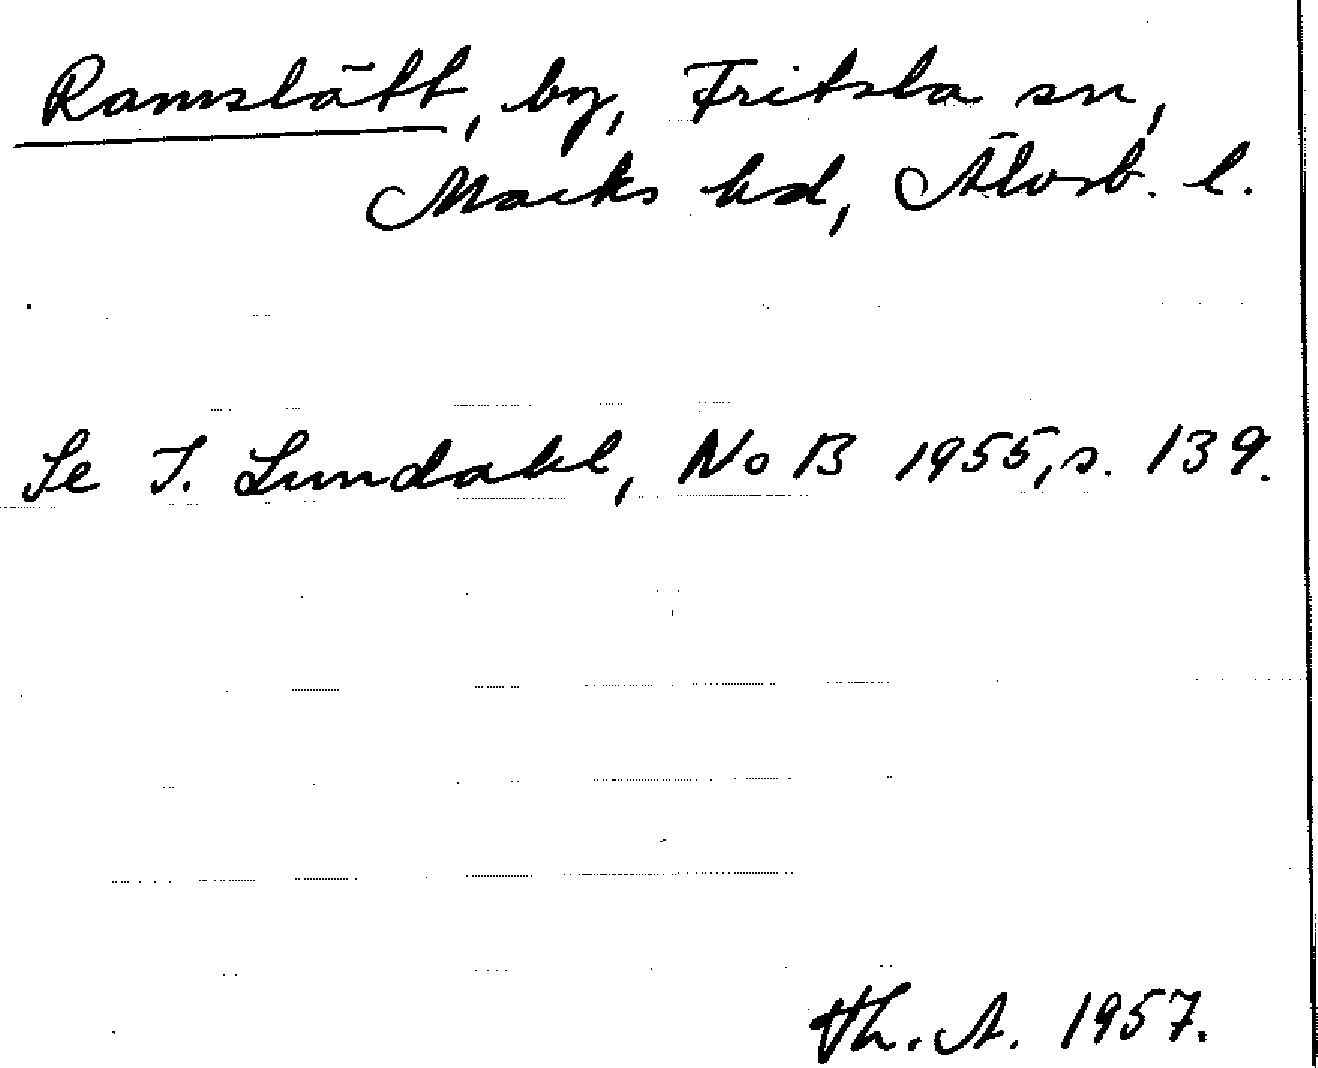 Ramslätt, by, Fritsla sn,
Marks hd, Älvsb. l.
Se I. Lundahl, NoB 1955, s. 139.
Th. A. 1957.